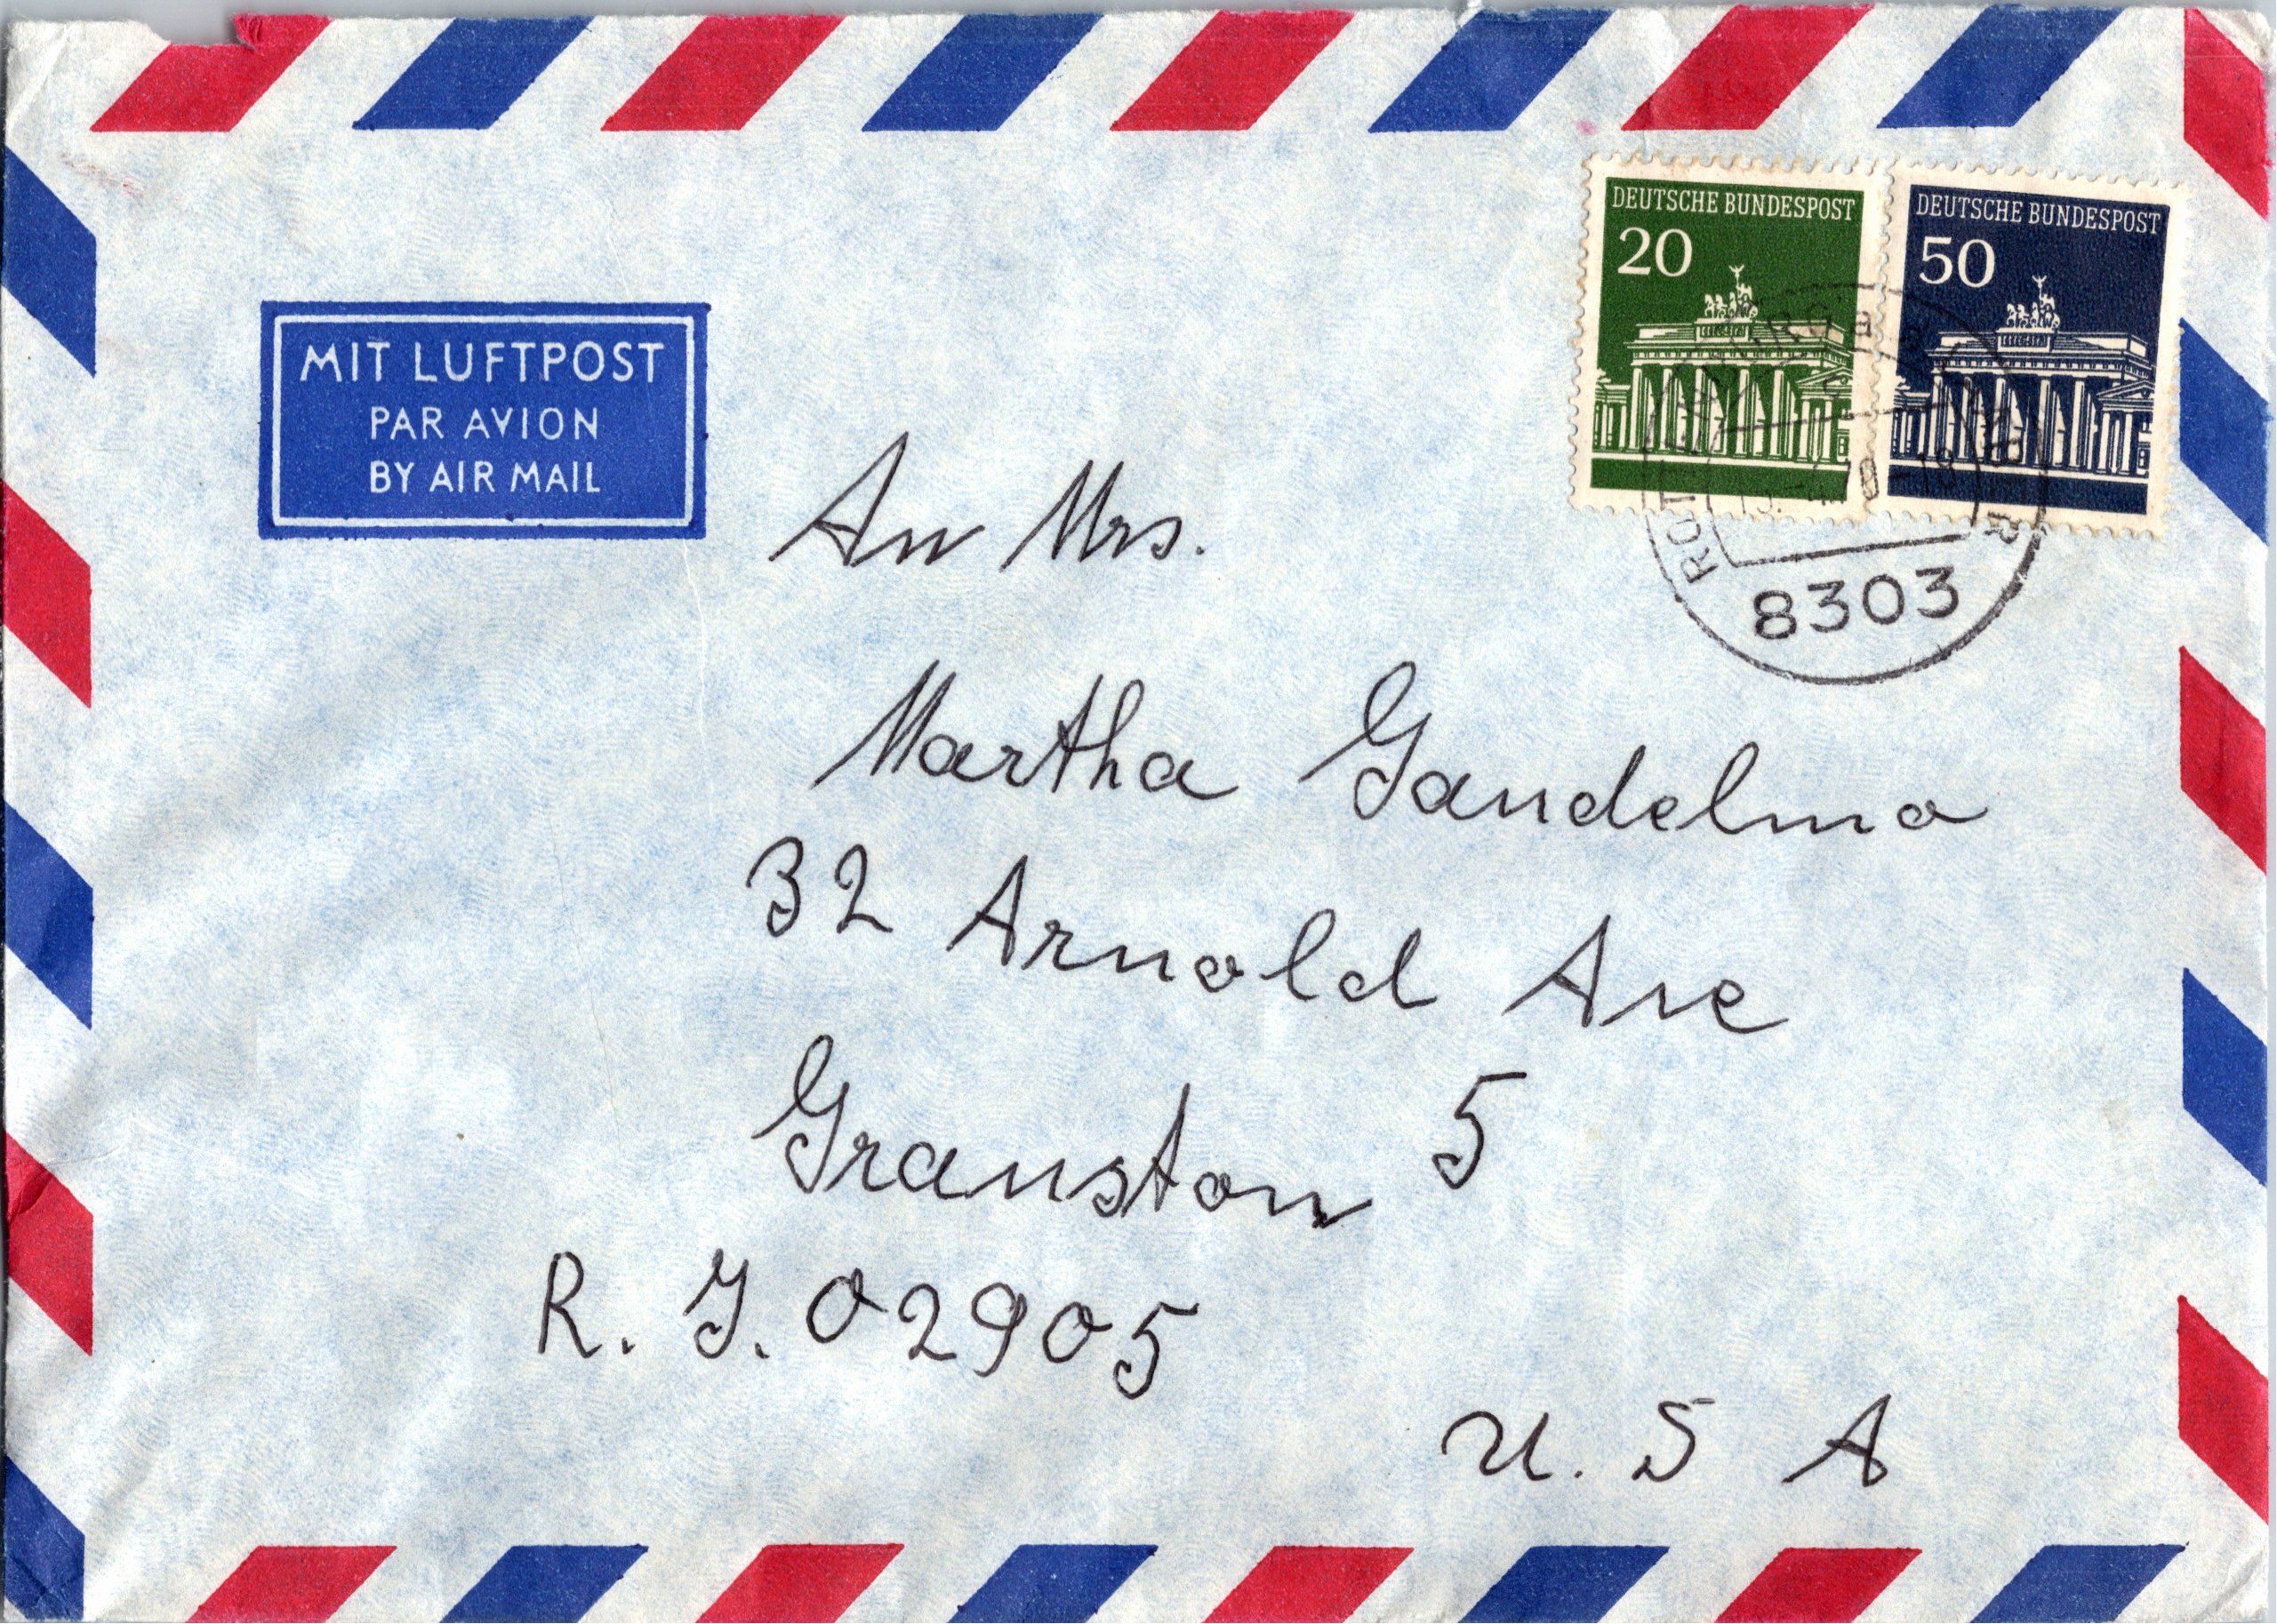 DEUTSCHE BUNDESPOST
20
DEUTSCHE BUNDESPOST
50
MIT LUFTPOST
PAR AVION
BY AIR MAIL
8303
An Mrs.
Martha Gandelmo
32 Arnold Ave
Granston 5
R. I. 02905
U. S A